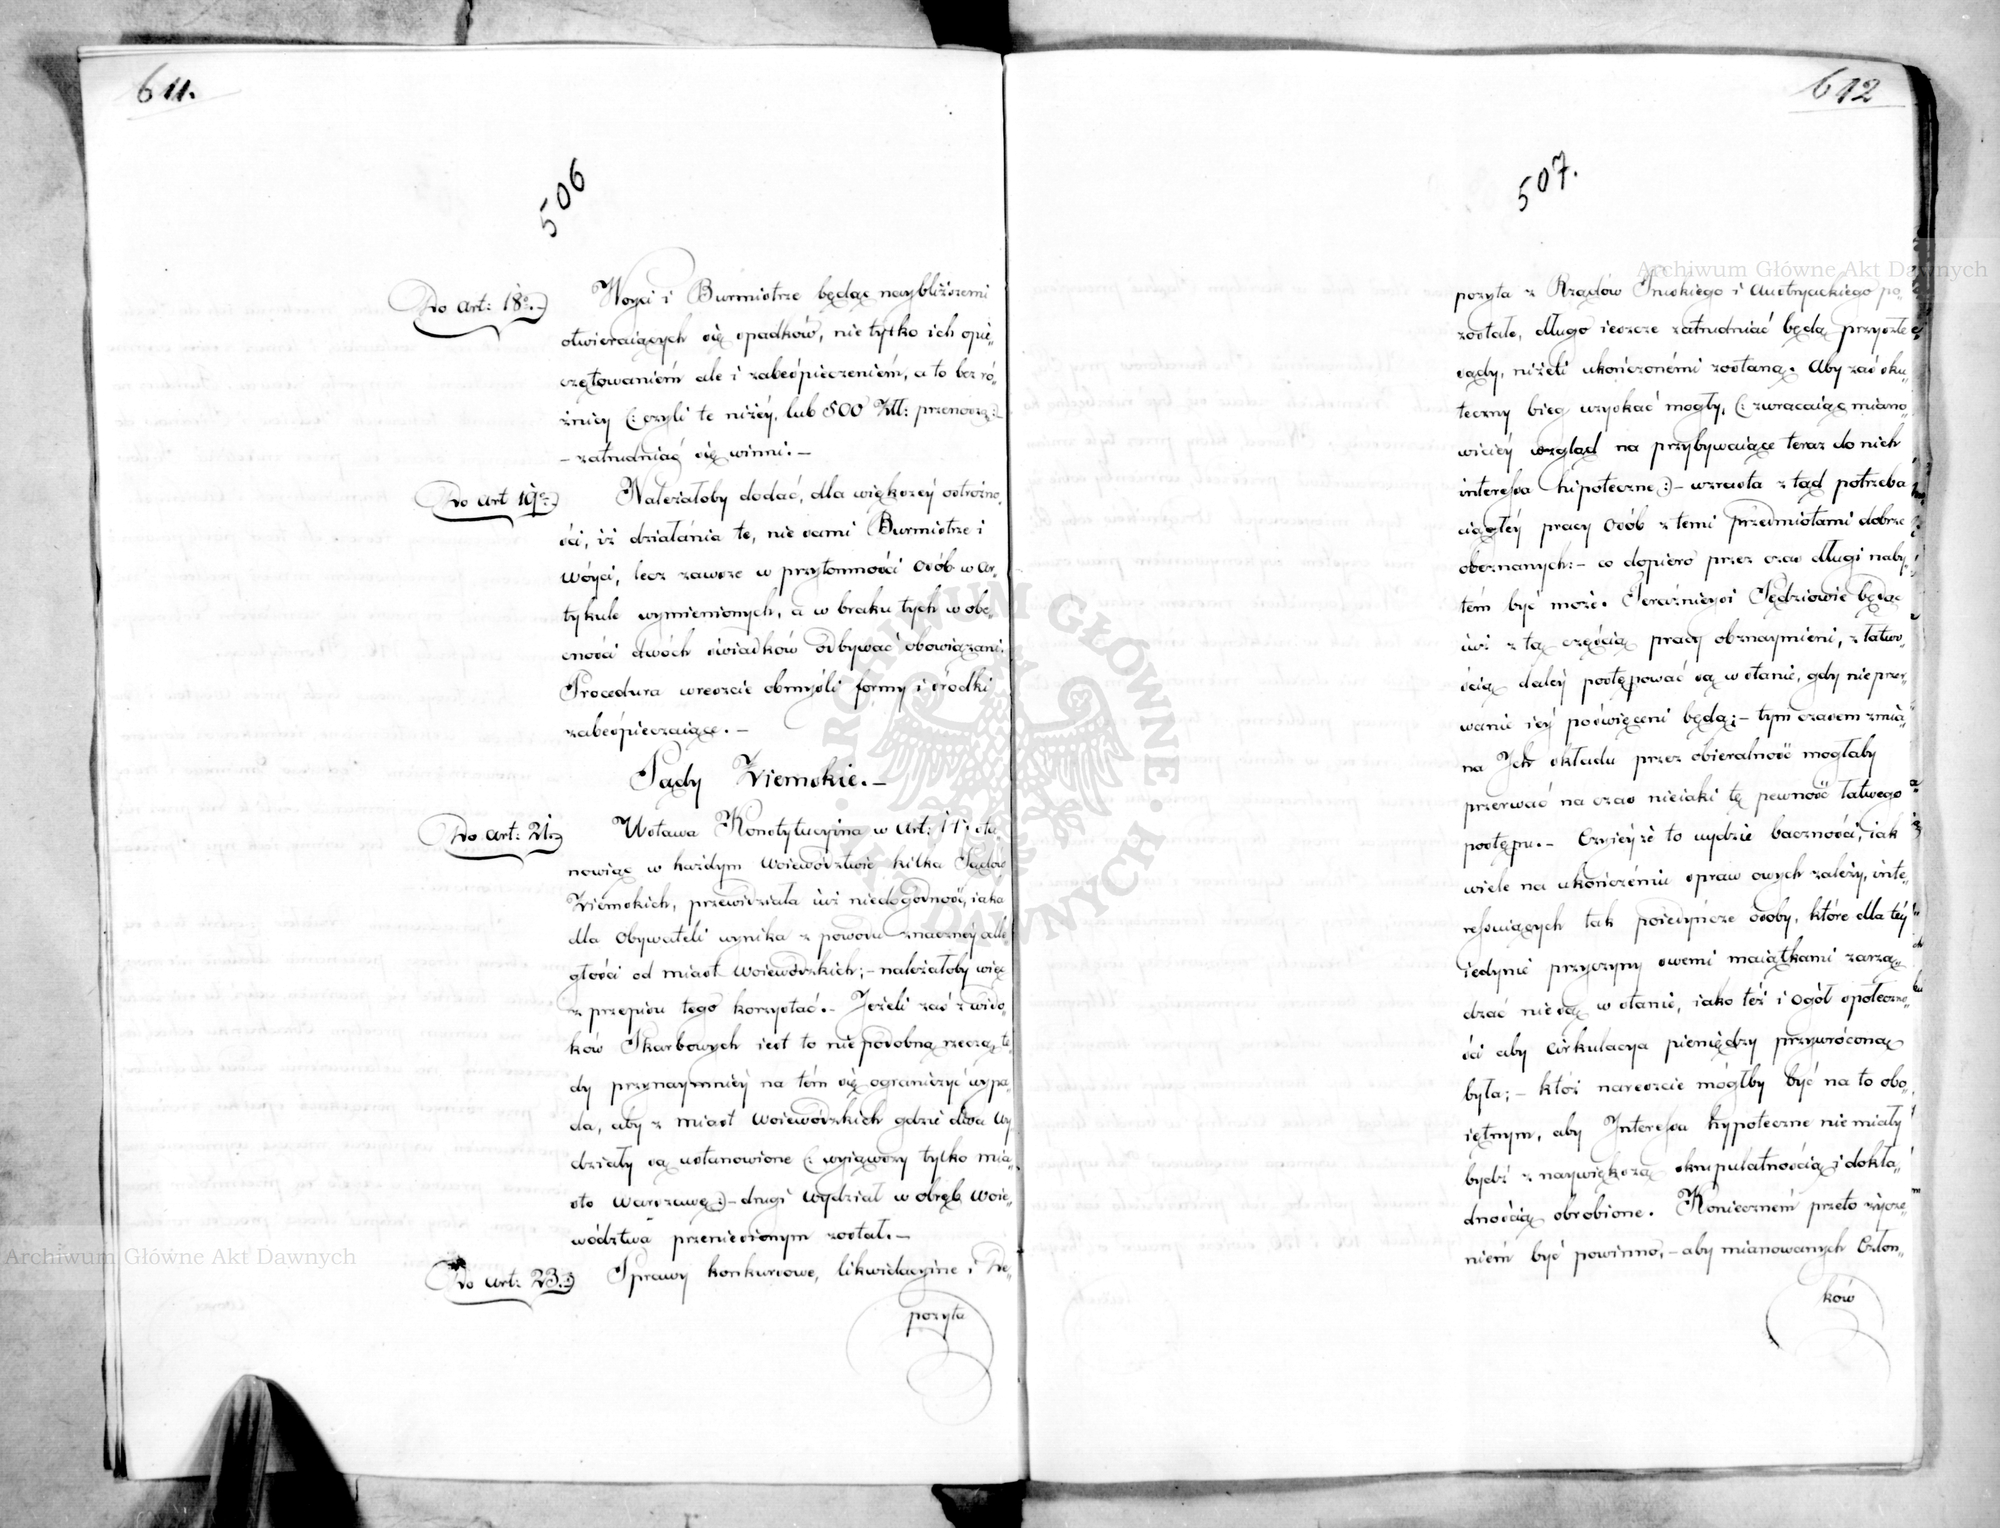 611.
506
Do art: 18º.
Woyci i Burmistrze będąc naybliższemi
otwieraiących się spadków, nie tylko ich opie„
czętowaniem ale i zabespieczeniem, a to bez ró„
żnicy (: czyli te niżéy, lub 500 Złł: przenoszą :)
– zatrudniać się winni. –
Do art 19º.
Należałoby dodać, dla większey ostrożno„
ści, iż działania te, nie sami Burmistrze i
Wóyci, lecz zawsze w przytomności Osób w Ar„
tykule wymienionych, a w braku tych w obe„
cności dwóch świadków odbywać obowiązani.
Procedura wreszcie obmyśli formy i śródki
zabespieczaiące. –
Sądy Ziemskie. –
Do art: 21.
Ustawa Konstytucyina w Art: sta„
nowiąc w każdym Woiewództwie kilka Sądów
Ziemskich, przewidziała iuż niedogodność, iaka
dla Obywateli wynika z powodu znaczney odle„
głości od miast Woiewódzkich; – należałoby więc
z przepisu tego korzystać. – Jeżeli zaś z wido„
ków Skarbowych iest to niepodobną rzeczą, te„
dy przynaymniéy na tém się ograniczyć wypa„
da, aby z miast Woiewódzkich gdzie dwa Wy
działy są ustanowione (: wyiąwszy tylko mia„
sto Warszawę :) – drugi Wydział w obręb Woie„
wództwa przeniesionym został. –
Do art: 23.
Sprawy konkursowe, likwidacyine i De„
pozyta
612
507.
pozyta z Rządów Pruskiego i Austryackiego po„
zostałe, długo ieszcze zatrudniać będą przyszłe
sądy, niżeli ukończonémi zostaną. Aby zaś sku„
teczny bieg uzyskać mogły, (: zwracaiąc miano„
wiciéy wzgląd na przybywaiące teraz do nich
interessa hipoteczne :) – wzrasta z tąd potrzeba
ciągłéy pracy Osób z temi przedmiotami dobrze
obeznanych: – co dopiero przez czas długi naby„
tém być może. Teraźnieysi Sędziowie będąc
iuż z tą częścią pracy obznaymieni, z łatwo„
ścią daléy postępować są w stanie, gdy nieprzer„
wanie iéy poświęceni będą; – tym czasem zmia„
na Ich składu przez obieralność mogłaby
przerwać na czas nieiaki tę pewność łatwego
postępu. – Czyieyże to uydzie baczności, iak
wiele na ukończeniu spraw owych zależy, inte„
ressuiących tak poiedyńcze osoby, które dla téy
iedynie przyczyny swemi maiątkami zarzą„
dzać nie są w stanie, iako też i Ogół społeczno„
ści aby cirkulacya pieniędzy przywróconą
była; – któż nareszcie mógłby być na to obo„
iętnym, aby Interessa hypoteczne nie miały
bydź z naywiększą skrupulatnością i dokła„
dnością obrobione. Koniecznem przeto życze„
niem być powinno, – aby mianowanych Człon„
ków
Archiwum Główne Akt Dawnych
Archiwum Główne Akt Dawnych
ARCHIWUM GŁÓWNE AKT DAWNYCH